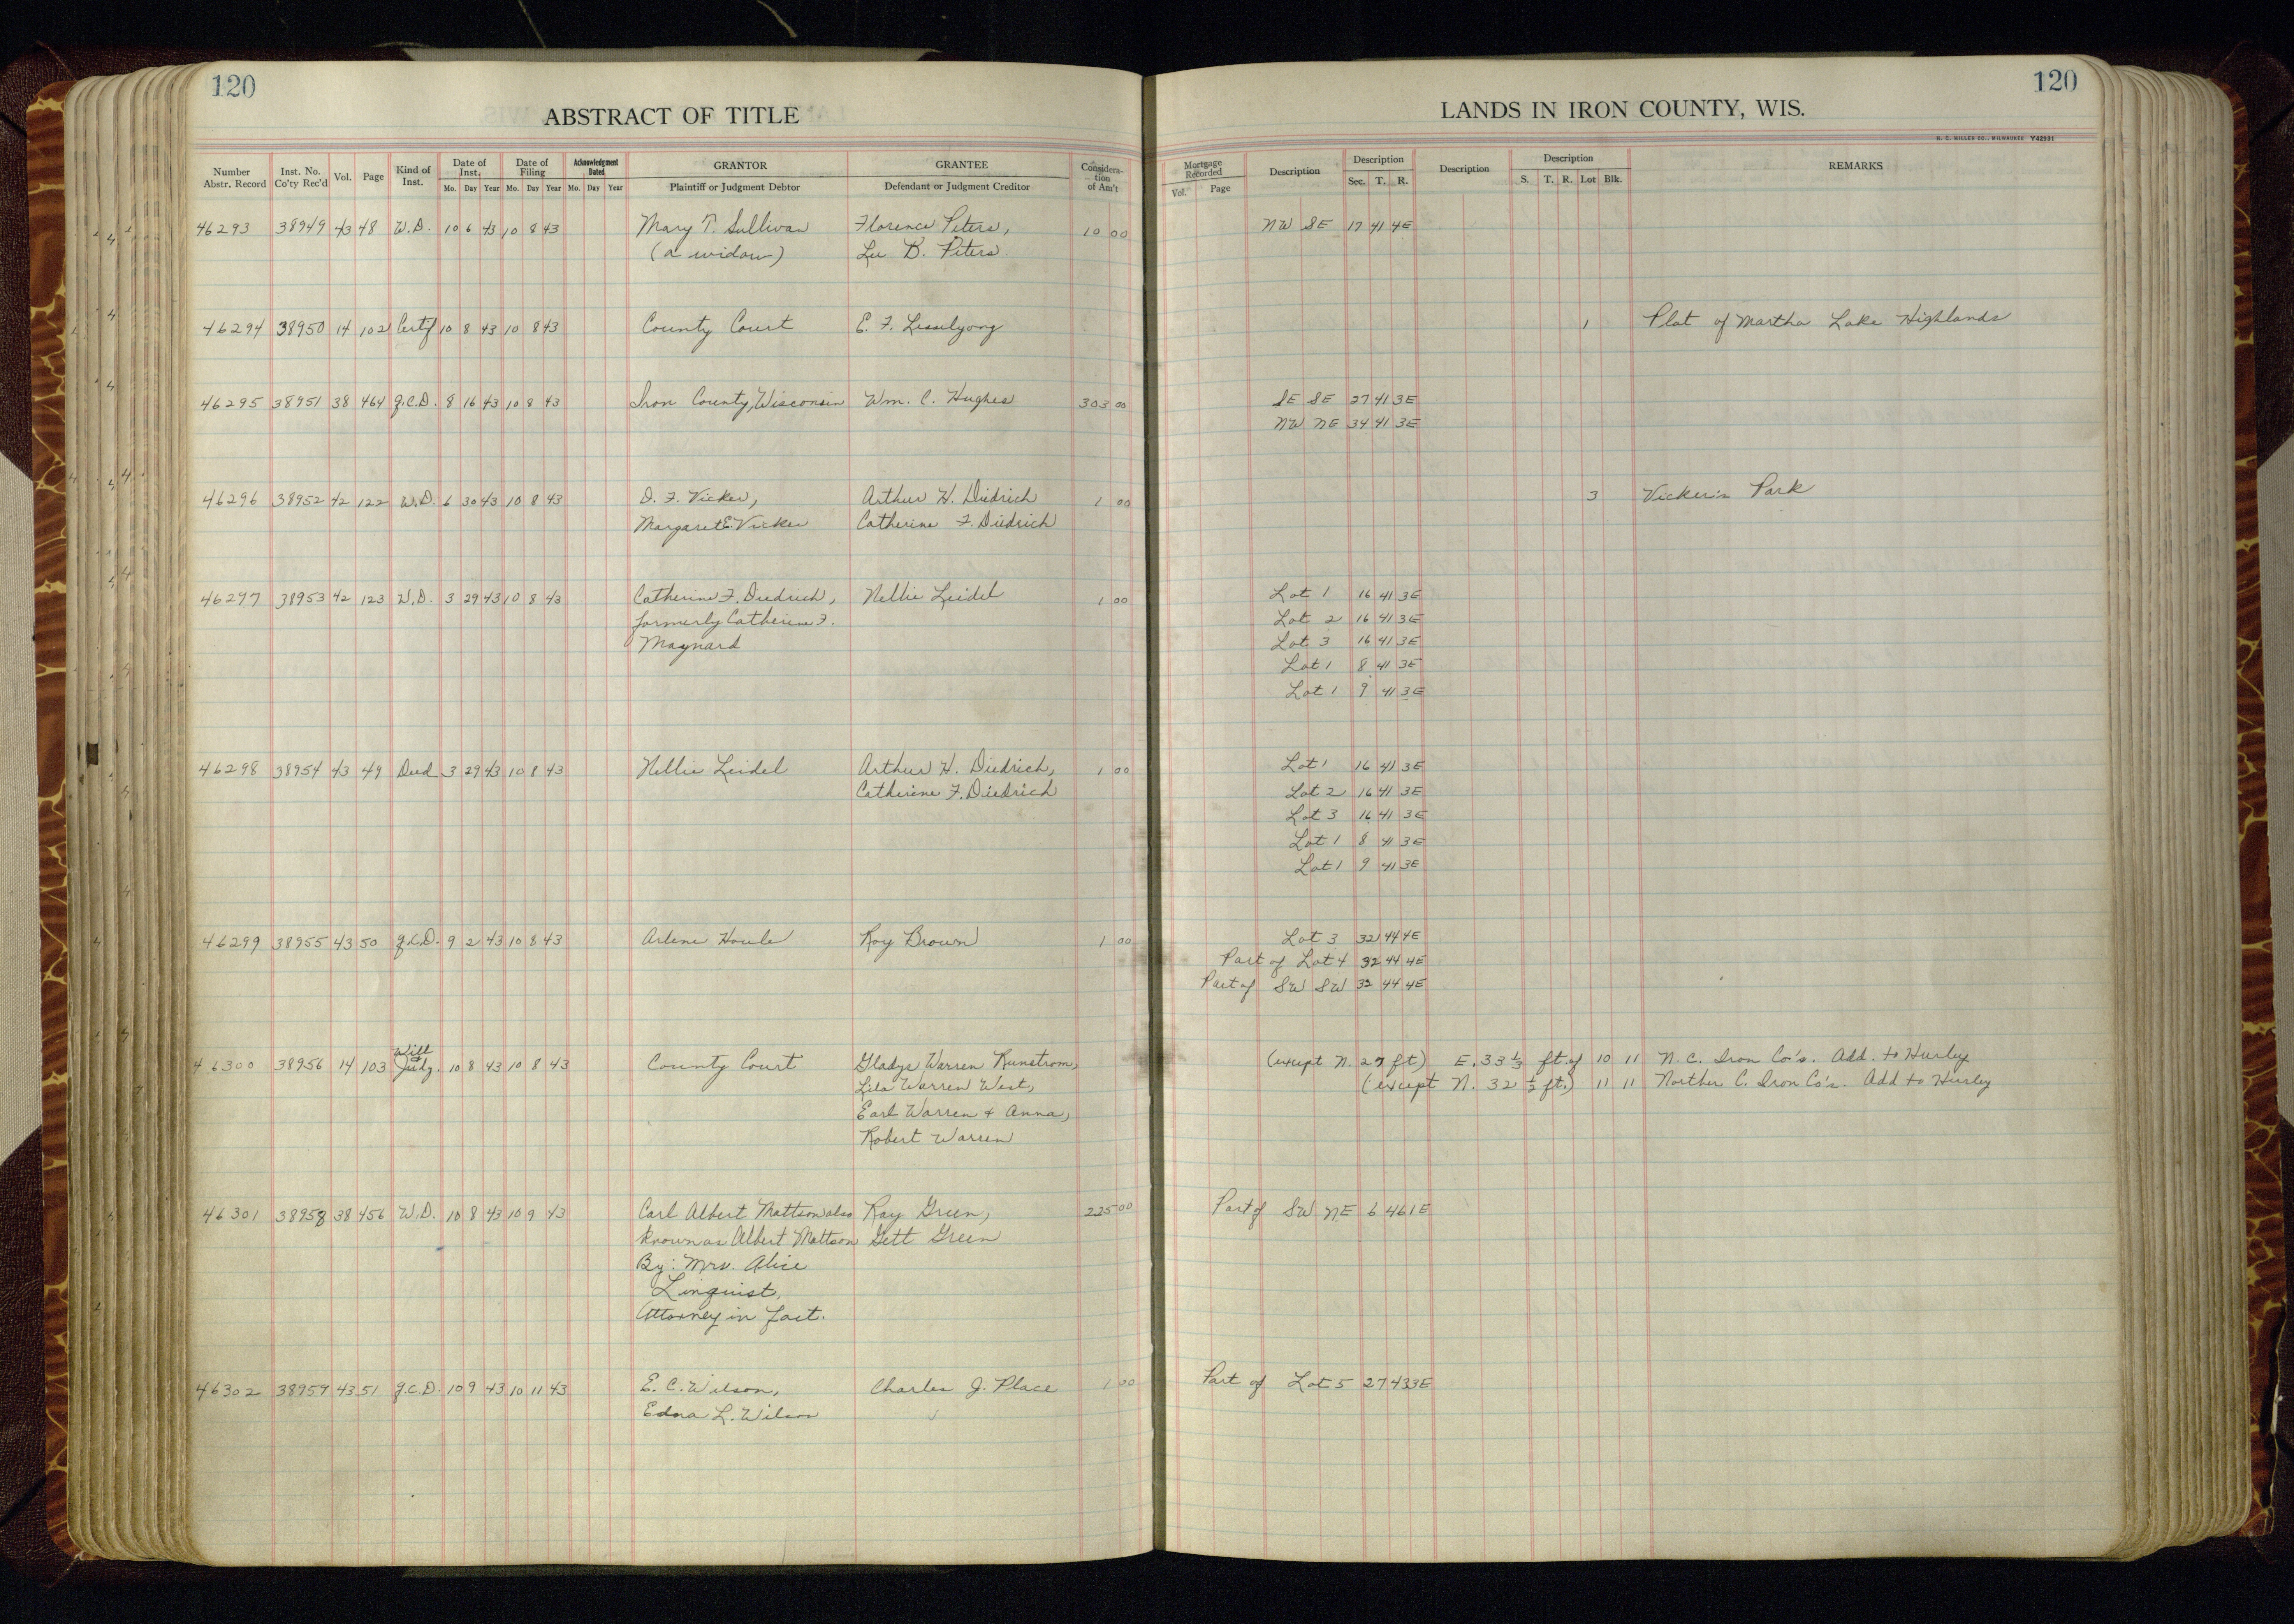 120
ABSTRACT OF TITLE
Number Abstr. Record Inst. No. Co'ty Rec'd Vol. Page Kind of Inst. Date of Inst. Mo. Day Year Date of Filing Mo. Day Year Acknowledgment Dated Mo. Day Year GRANTOR Plaintiff or Judgment Debtor GRANTEE Defendant or Judgment Creditor Considera-tion of Am't
46293 38949 43 48 W.D. 10 6 43 10 8 43 Mary T. Sullivan Florence Peters, 10 00
(a widow) Lee B. Peters
46294 38950 14 102 Certf 10 8 43 10 8 43 County Court E. F.
46295 38951 38 464 q.C.D. 8 16 43 10 8 43 Iron County, Wisconsin Wm. C. Hughes 303 00
46296 38952 42 122 W.D. 6 30 43 10 8 43 D. F. Vicker, Arthur H. Diedrich 1 00
Margaret E. Vicker Catherine F. Diedrich
46297 38953 42 123 W.D. 3 29 43 10 8 43 Catherine F. Diedrich, Nellie Leidel 1 00
formerly Catherine F.
Maynard
46298 38954 43 49 Deed 3 29 43 10 8 43 Nellie Leidel Arthur H. Diedrich, 1 00
Catherine F. Diedrich
46299 38955 43 50 q.C.D. 9 2 43 10 8 43 Arlene Houle Roy Brown 1 00
Will
46300 38956 14 103 Judg. 10 8 43 10 8 43 County Court Gladys Warren Runstrom,
Lila Warren West,
Earl Warren + Anna,
Robert Warren
46301 38958 38 456 W.D. 10 8 43 10 9 43 Carl Albert Mattson also Ray Green, 225 00
known as Albert Mattson Gett Green
By: Mrs. Alice
Linquist,
Attorney in fact.
46302 38959 43 51 q.C.D. 10 9 43 10 11 43 E. C. Wilson, Charles J. Place 1 00
Edna L. Wilson
120
LANDS IN IRON COUNTY, WIS.
H. C. MILLER CO., MILWAUKEE Y42931
Mortgage Recorded Vol. Page Description Description Sec. T. R. Description Description S. T. R. Lot Blk. REMARKS
NW SE 17 41 4E
1 Plat of Martha Lake Highlands
SE SE 27 41 3E
NW NE 34 41 3E
3 Vicker's Park
Lot 1 16 41 3E
Lot 2 16 41 3E
Lot 3 16 41 3E
Lot 1 8 41 3E
Lot 1 9 41 3E
Lot 1 16 41 3E
Lot 2 16 41 3E
Lot 3 16 41 3E
Lot 1 8 41 3E
Lot 1 9 41 3E
Lot 3 32 44 4E
Part of Lot 4 32 44 4E
Part of SW SW 32 44 4E
(except N. 27 ft) E. 33 1/3 ft. of 10 11 N. C. Iron Co's. Add. to Hurley
(except N. 32 1/2 ft.) 11 11 Norther C. Iron Co's. Add to Hurley
Part of SW NE 6 46 1E
Part of Lot 5 27 43 3E